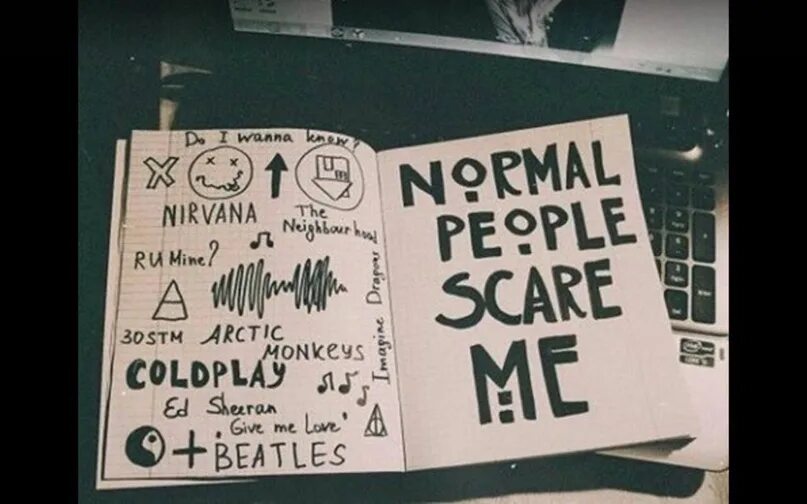 Do I wanna know?
X
NIRVANA
The
Neighbourhood
R U Mine?
Imagine Dragons
30STM
ARCTIC
MONKEYS
COLDPLAY
Ed Sheeran
'Give me Love'
+
BEATLES
NORMAL
PEOPLE
SCARE
ME